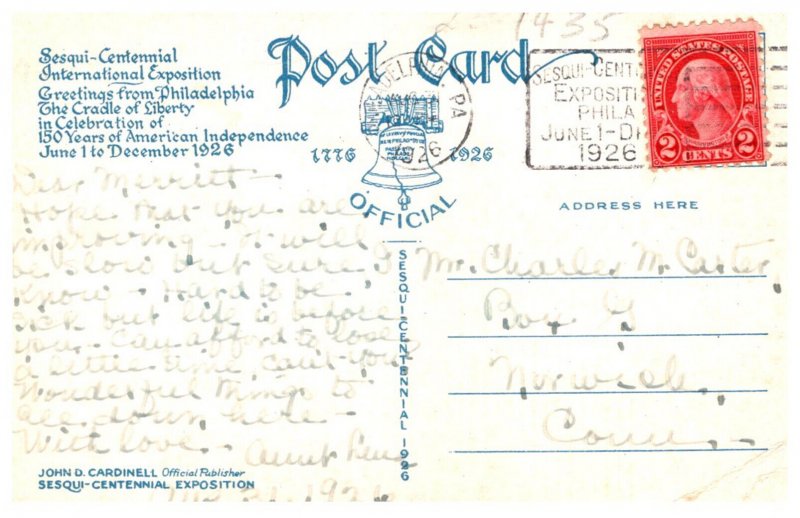 1435
Sesqui-Centennial
International Exposition
Greetings from Philadelphia
The Cradle of Liberty
in Celebration of
150 Years of American Independence
June 1 to December 1926
Post Card
1776 1926
OFFICIAL
PA
1926
SESQUI-CENT
EXPOSITI
PHILA
JUNE 1-D
1926
UNITED STATES POSTAGE
2 CENTS 2
ADDRESS HERE
Dear Merritt-
Hope that you are
improving. It will
be slow but sure I
know - Hard to be
sick but life is before
you. Can afford to lose
a little time can't you
Wonderful things to
see down here -
With love - Aunt
SESQUI-CENTENNIAL 1926
Mr. Charles M. Carter,
Box G
Norwich,
Conn.
JOHN D. CARDINELL Official Publisher
SESQUI-CENTENNIAL EXPOSITION